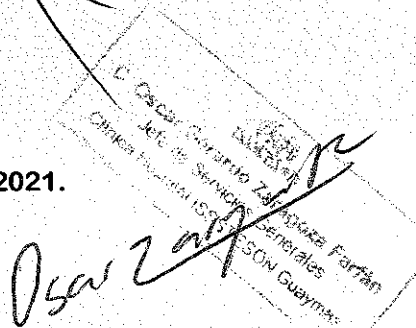 2021.
C. Oscar Zaragoza Farfán
Jefe de Servicios Generales
Clinica Hospital ISSSTESON Guaymas
Oscar Zaragoza